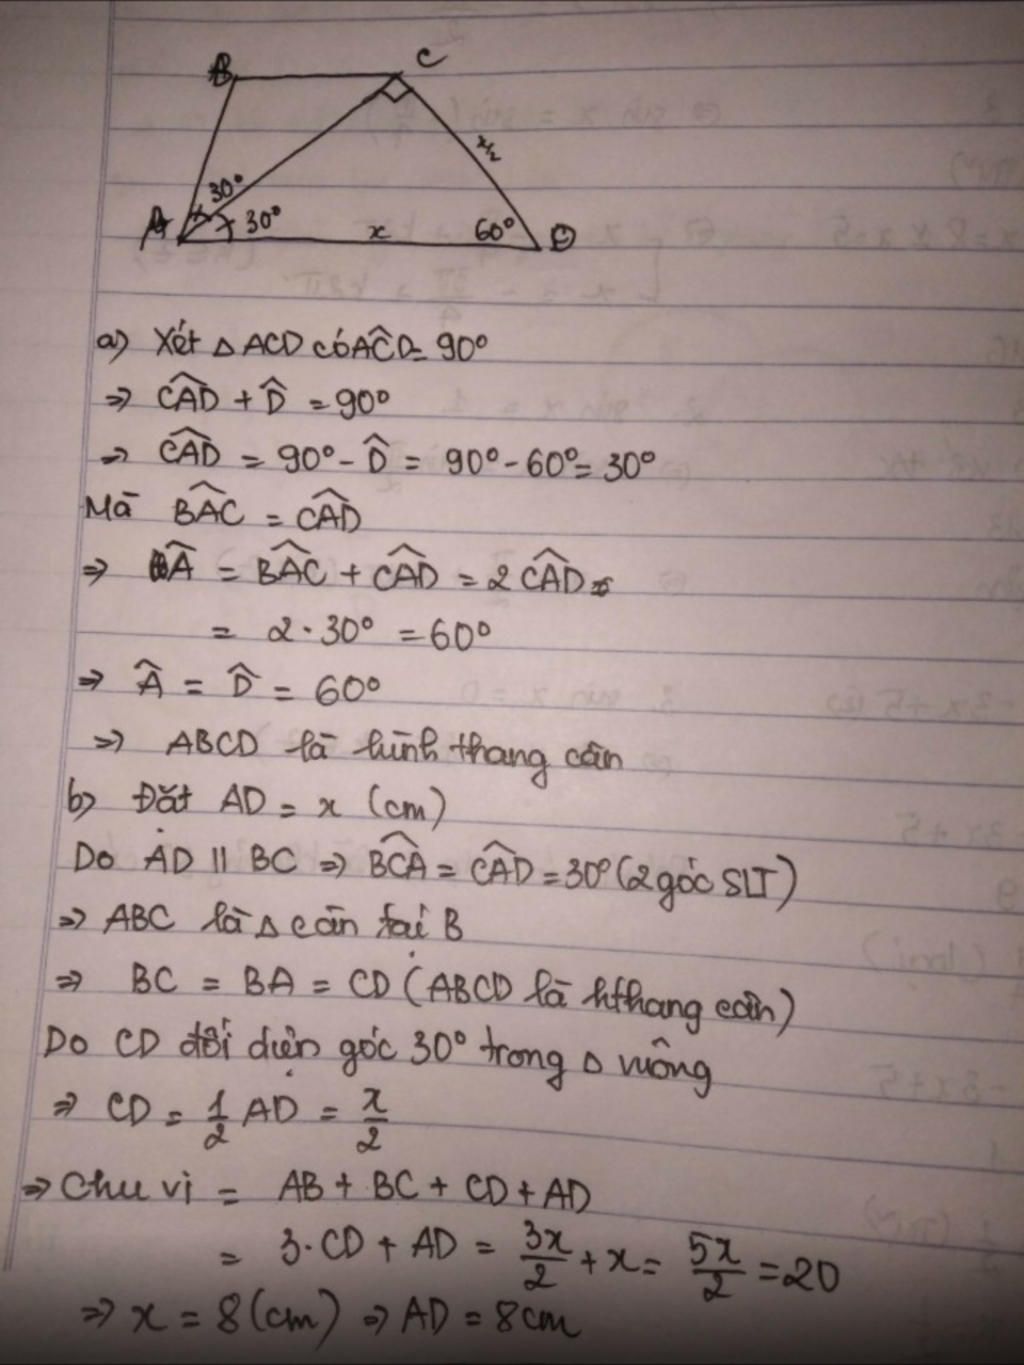 B C
30° 30° x x/2 60° A D
a) Xét △ ACD có A͡CD = 90°
⇒ C͡AD + D̂ = 90°
⇒ C͡AD = 90° - D̂ = 90° - 60° = 30°
Mà B͡AC = C͡AD
⇒ Â = B͡AC + C͡AD = 2 C͡AD
= 2 · 30° = 60°
⇒ Â = D̂ = 60°
⇒ ABCD là hình thang cân
b) Đặt AD = x (cm)
Do AD || BC ⇒ B͡CA = C͡AD = 30° (2 góc SLT)
⇒ ABC là △ cân tại B
⇒ BC = BA = CD (ABCD là hthang cân)
Do CD đối diện góc 30° trong △ vuông
⇒ CD = 1/2 AD = x/2
⇒ Chu vi = AB + BC + CD + AD
= 3 · CD + AD = 3x/2 + x = 5x/2 = 20
⇒ x = 8 (cm) ⇒ AD = 8cm